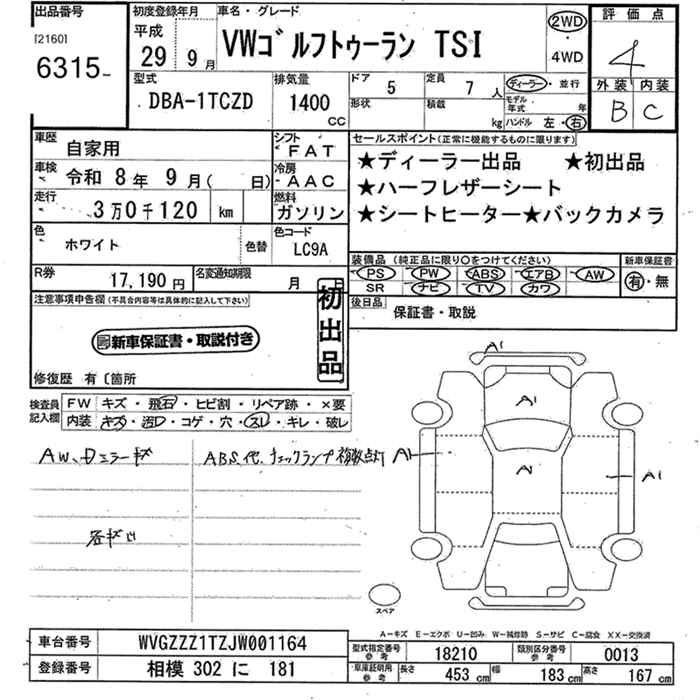 出品番号 初度登録年月 車名・グレード 評価点
[2160] 平成 VWゴルフトゥーラン TSI 2WD 4
6315 29年 9月 ・ 4WD 外装 内装
B C
型式 排気量 ドア 5 定員 7人 ディーラー・並行
DBA-1TCZD 1400cc 形状 積載 kg モデル年式 年
ハンドル 左・右
車歴 自家用 シフト FAT セールスポイント(正常に機能するものに限ります)
車検 令和 8年 9月( 日) 冷房 AAC ★ディーラー出品 ★初出品
走行 3万0千120 km 燃料 ガソリン ★ハーフレザーシート
★シートヒーター★バックカメラ
色 ホワイト 色替 色コード LC9A
装備品(純正品に限り○をつけてください) 新車保証書
PS PW ABS エアB AW 有・無
SR ナビ TV カワ
R券 17,190円 名変通知期限 月 日
後日品 保証書・取説
注意事項申告欄(不具合内容等は具体的に記入して下さい) 初出品
新車保証書・取説付き
修復歴 有〔箇所
検査員記入欄 FW キズ・飛石・ヒビ割・リペア跡・×要
内装 キズ・汚レ・コゲ・穴・スレ・キレ・破レ
AW、ドミラーキズ ABS、他、チェックランプ複数点灯
A1
A1
A1 A1 A1
スペア
A-キズ E-エクボ U-凹み W-補修跡 S-サビ C-腐食 XX-交換済
車台番号 WVGZZZ1TZJW001164 型式指定番号 参考 18210 類別区分番号 参考 0013
登録番号 相模 302 に 181 車庫証明用 参考 長さ 453cm 幅 183cm 高さ 167cm